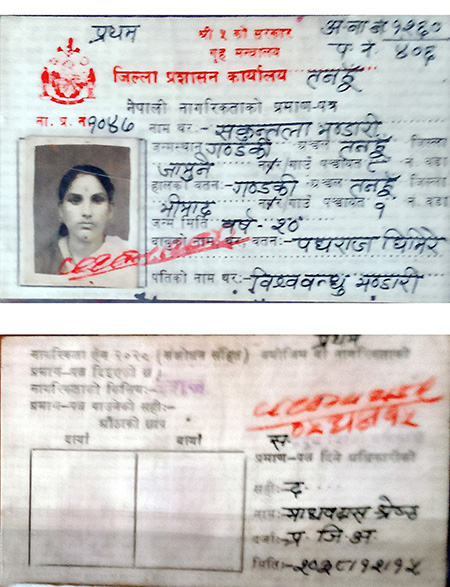 प्रथम
श्री ५ को सरकार
गृह मन्त्रालय
अ.ना.न. १२६०
प. नं. ४०६
जिल्ला प्रशासन कार्यालय तनहूँ
नेपाली नागरिकताको प्रमाण-पत्र
ना. प्र. न १०४७ नाम थर:- सकुन्तला भण्डारी
जन्मस्थान गण्डकी अञ्चल तनहूँ जिल्ला
जामुने गाउँ पञ्चायत न. वडा
हालको वतन:- गण्डकी अञ्चल तनहूँ जिल्ला
भीमाद गाउँ पञ्चायत १ न. वडा
जन्म मिति वर्ष - २०
बाबुको नाम थर वतन:- पद्मराज घिमिरे
पतिको नाम थर:- विश्वबन्धु भण्डारी
प्रथम
नागरिकता ऐन २०२० (संशोधन सहित) बमोजिम यो नागरिकताको
प्रमाण-पत्र दिइएको छ।
नागरिकताको किसिम:-
प्रमाण-पत्र पाउनेको सही:-
औंठाको छाप
दायाँ बायाँ
स
प्रमाण-पत्र दिने अधिकारीको
सही:- द
नाम:- माधवदास श्रेष्ठ
दर्जा:- प्र. जि. अ.
मिति:- २०३८।१२।१५